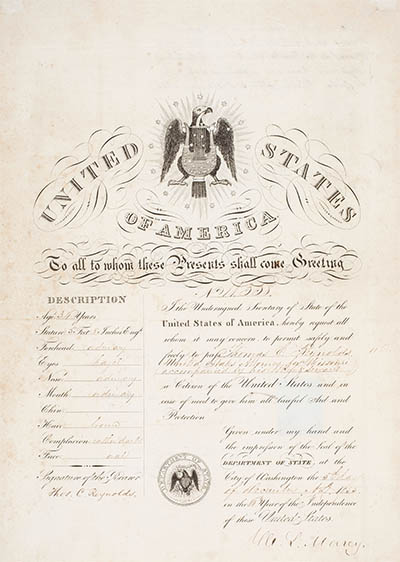 UNITED STATES
OF AMERICA
To all to whom these Presents shall come Greeting
DESCRIPTION
Age 34 Years
Stature 5 Feet Inches Eng.
Forehead ordinary
Eyes
Nose ordinary
Mouth ordinary
Chin
Hair
Complexion rather dark
Face oval
Signature of the Bearer
Thos. C. Reynolds.
I the Undersigned Secretary of State of the
United States of America, hereby request all
whom it may concern to permit safely and
freely to pass Thomas C. Reynolds
accompanied by his
a Citizen of the United States and in
case of need to give him all lawful Aid and
Protection
Given under my hand and
the impression of the Seal of the
DEPARTMENT OF STATE, at the
City of Washington the day
of
in the Year of the Independence
of these United States
W. L. Marcy.